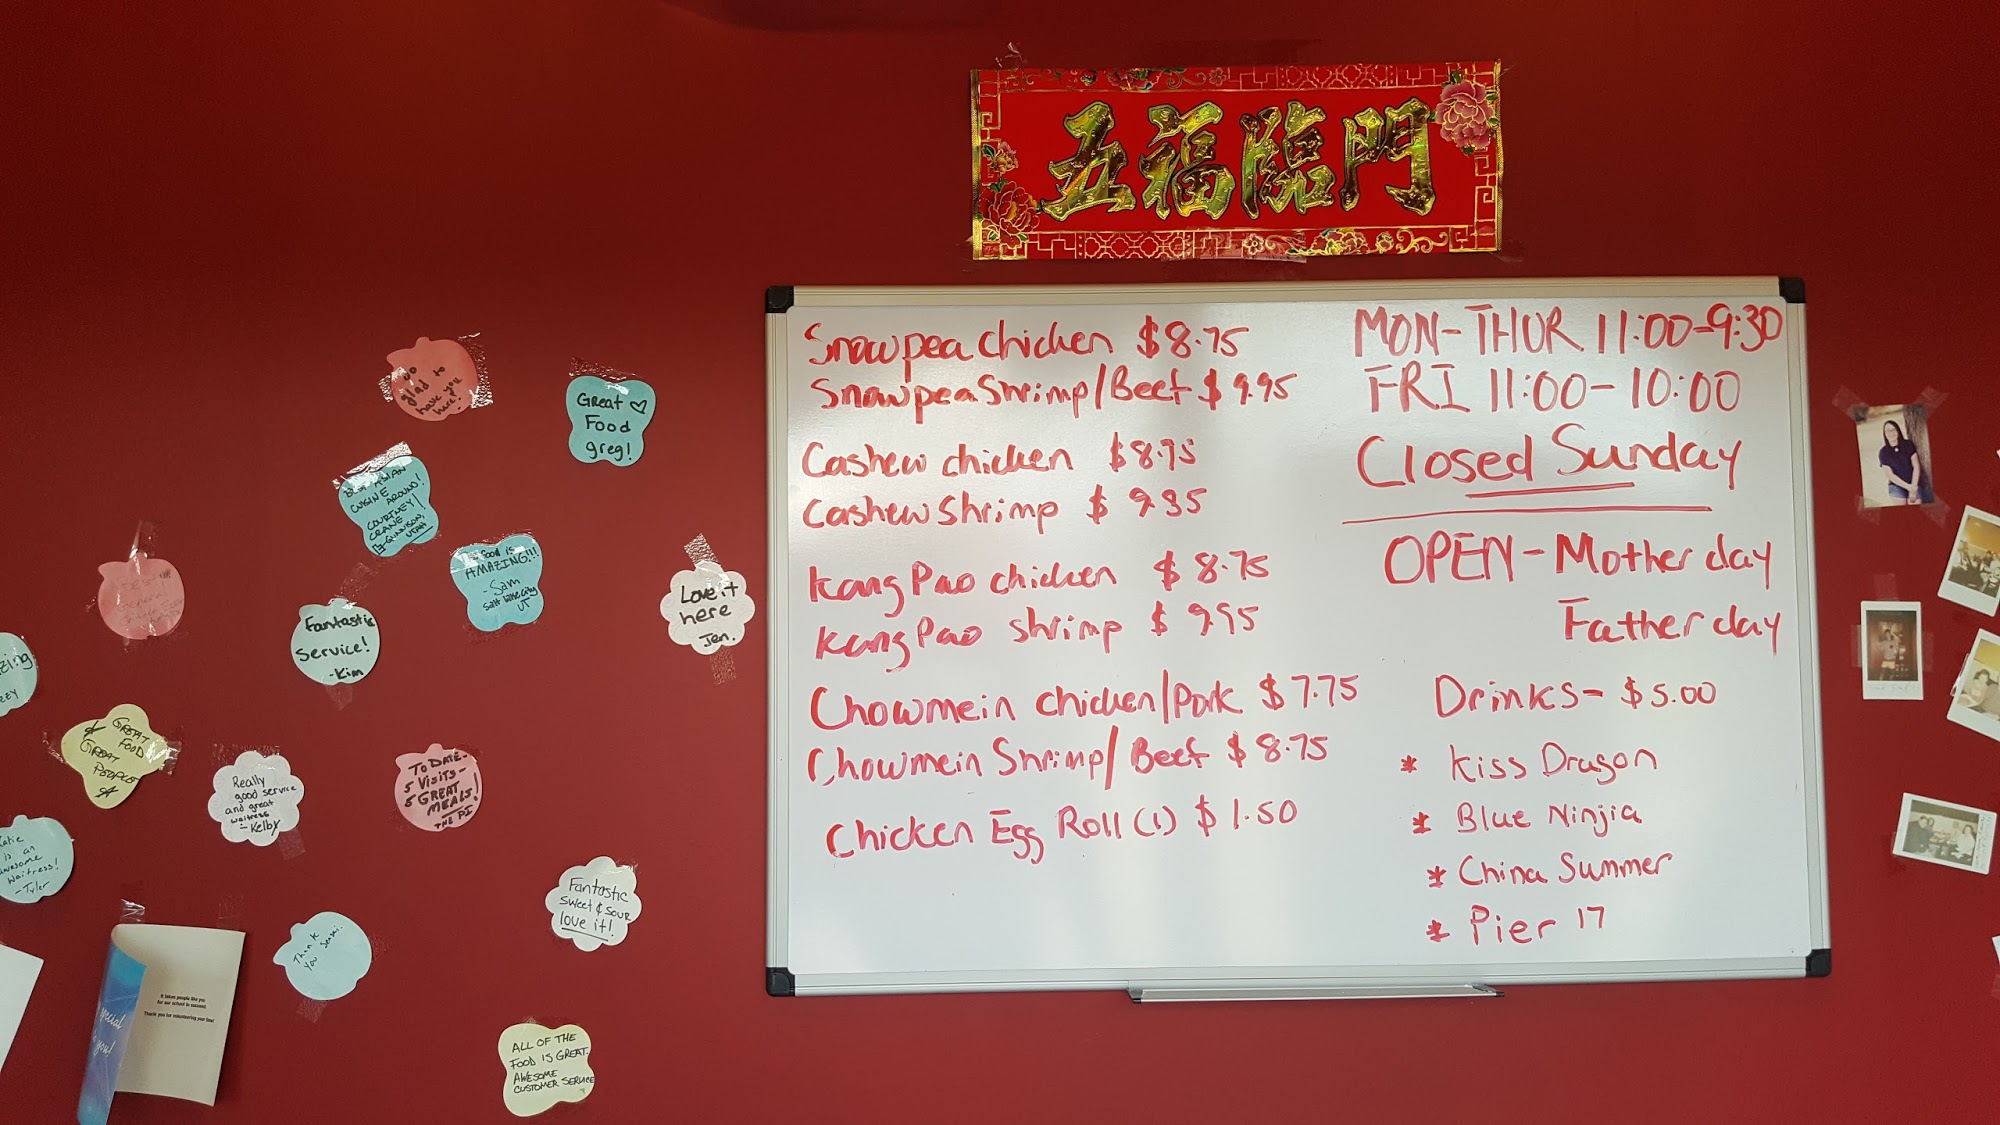 五福臨門
Snowpea chicken $8.75
Snowpea Shrimp/Beef $9.95
Cashew chicken $8.75
Cashew Shrimp $9.95
Kang Pao chicken $8.75
Kang Pao shrimp $9.95
Chowmein chicken/Pork $7.75
Chowmein Shrimp/Beef $8.75
Chicken Egg Roll (1) $1.50
MON-THUR 11:00-9:30
FRI 11:00-10:00
Closed Sunday
OPEN-Mother day
Father day
Drinks-$5.00
* Kiss Dragon
* Blue Ninjia
* China Summer
* Pier 17
so
glad to
have you
here!
Great ♡
Food
greg!
Best Asian
Cuisine
Around!
Courtney!
Crane
Gunnison,
Utah
Food is
AMAZING!!!
- Sam
Salt Lake City
UT
Love it
here
Jen.
Fantastic
Service!
-Kim
Great
Food
Great
People
Really
good service
and great
waitress
- Kelby
To Date-
5 Visits-
5 Great
Meals!
The PI
Katie
is an
awesome
Waitress!
- Tyler
Fantastic
Sweet & Sour
love it!
Thank
You
It takes people like you
for our school to succeed.
Thank you for volunteering your time!
special
you!
ALL OF THE
FOOD IS GREAT.
AWESOME
CUSTOMER SERVICE